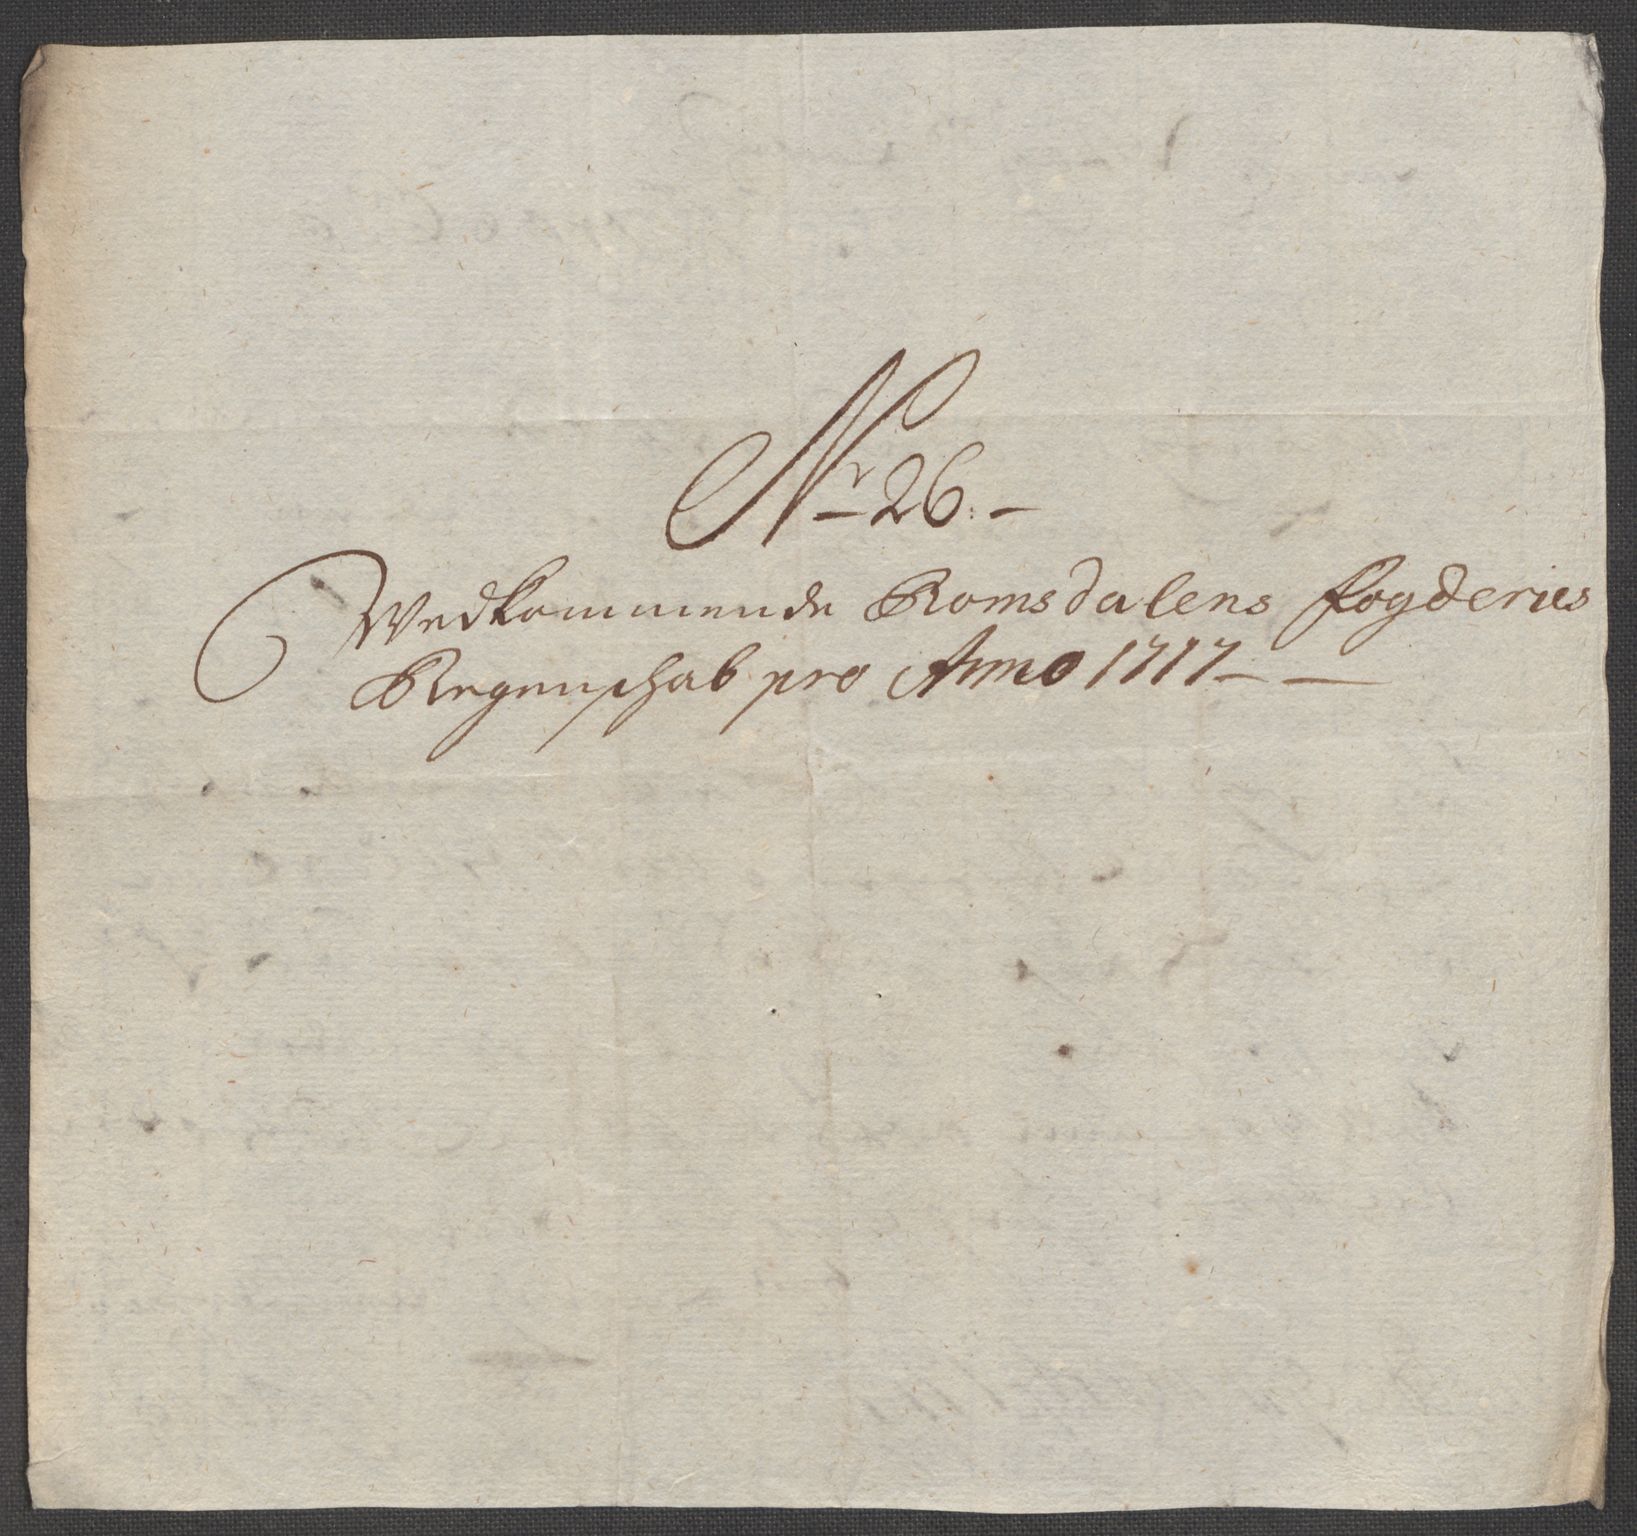 Nr 26.-
Vedkommende Romsdalens fogderies
Regenschab pro Anno 1717 - -